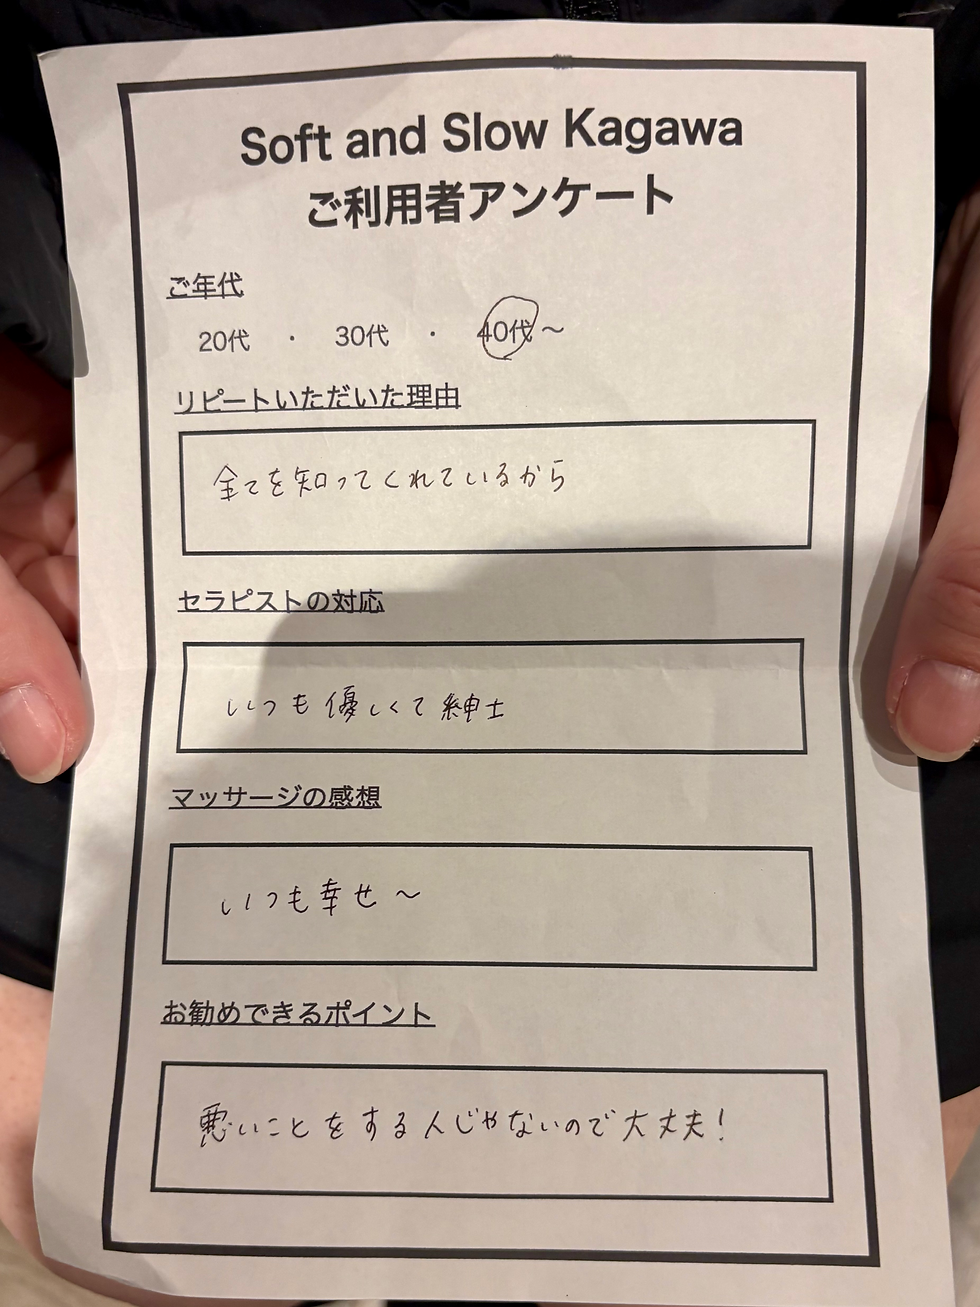 Soft and Slow Kagawa
ご利用者アンケート
ご年代
20代 ・ 30代 ・ 40代～
リピートいただいた理由
全てを知ってくれているから
セラピストの対応
いつも優しくて紳士
マッサージの感想
いつも幸せ～
お勧めできるポイント
悪いことをする人じゃないので大丈夫!